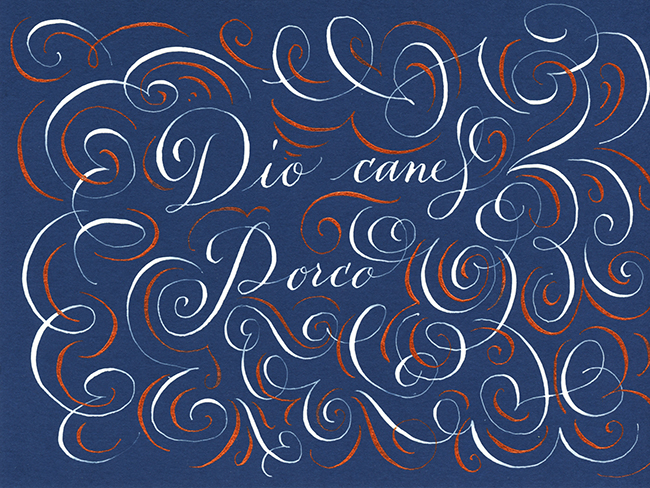 Dio cane
Porco